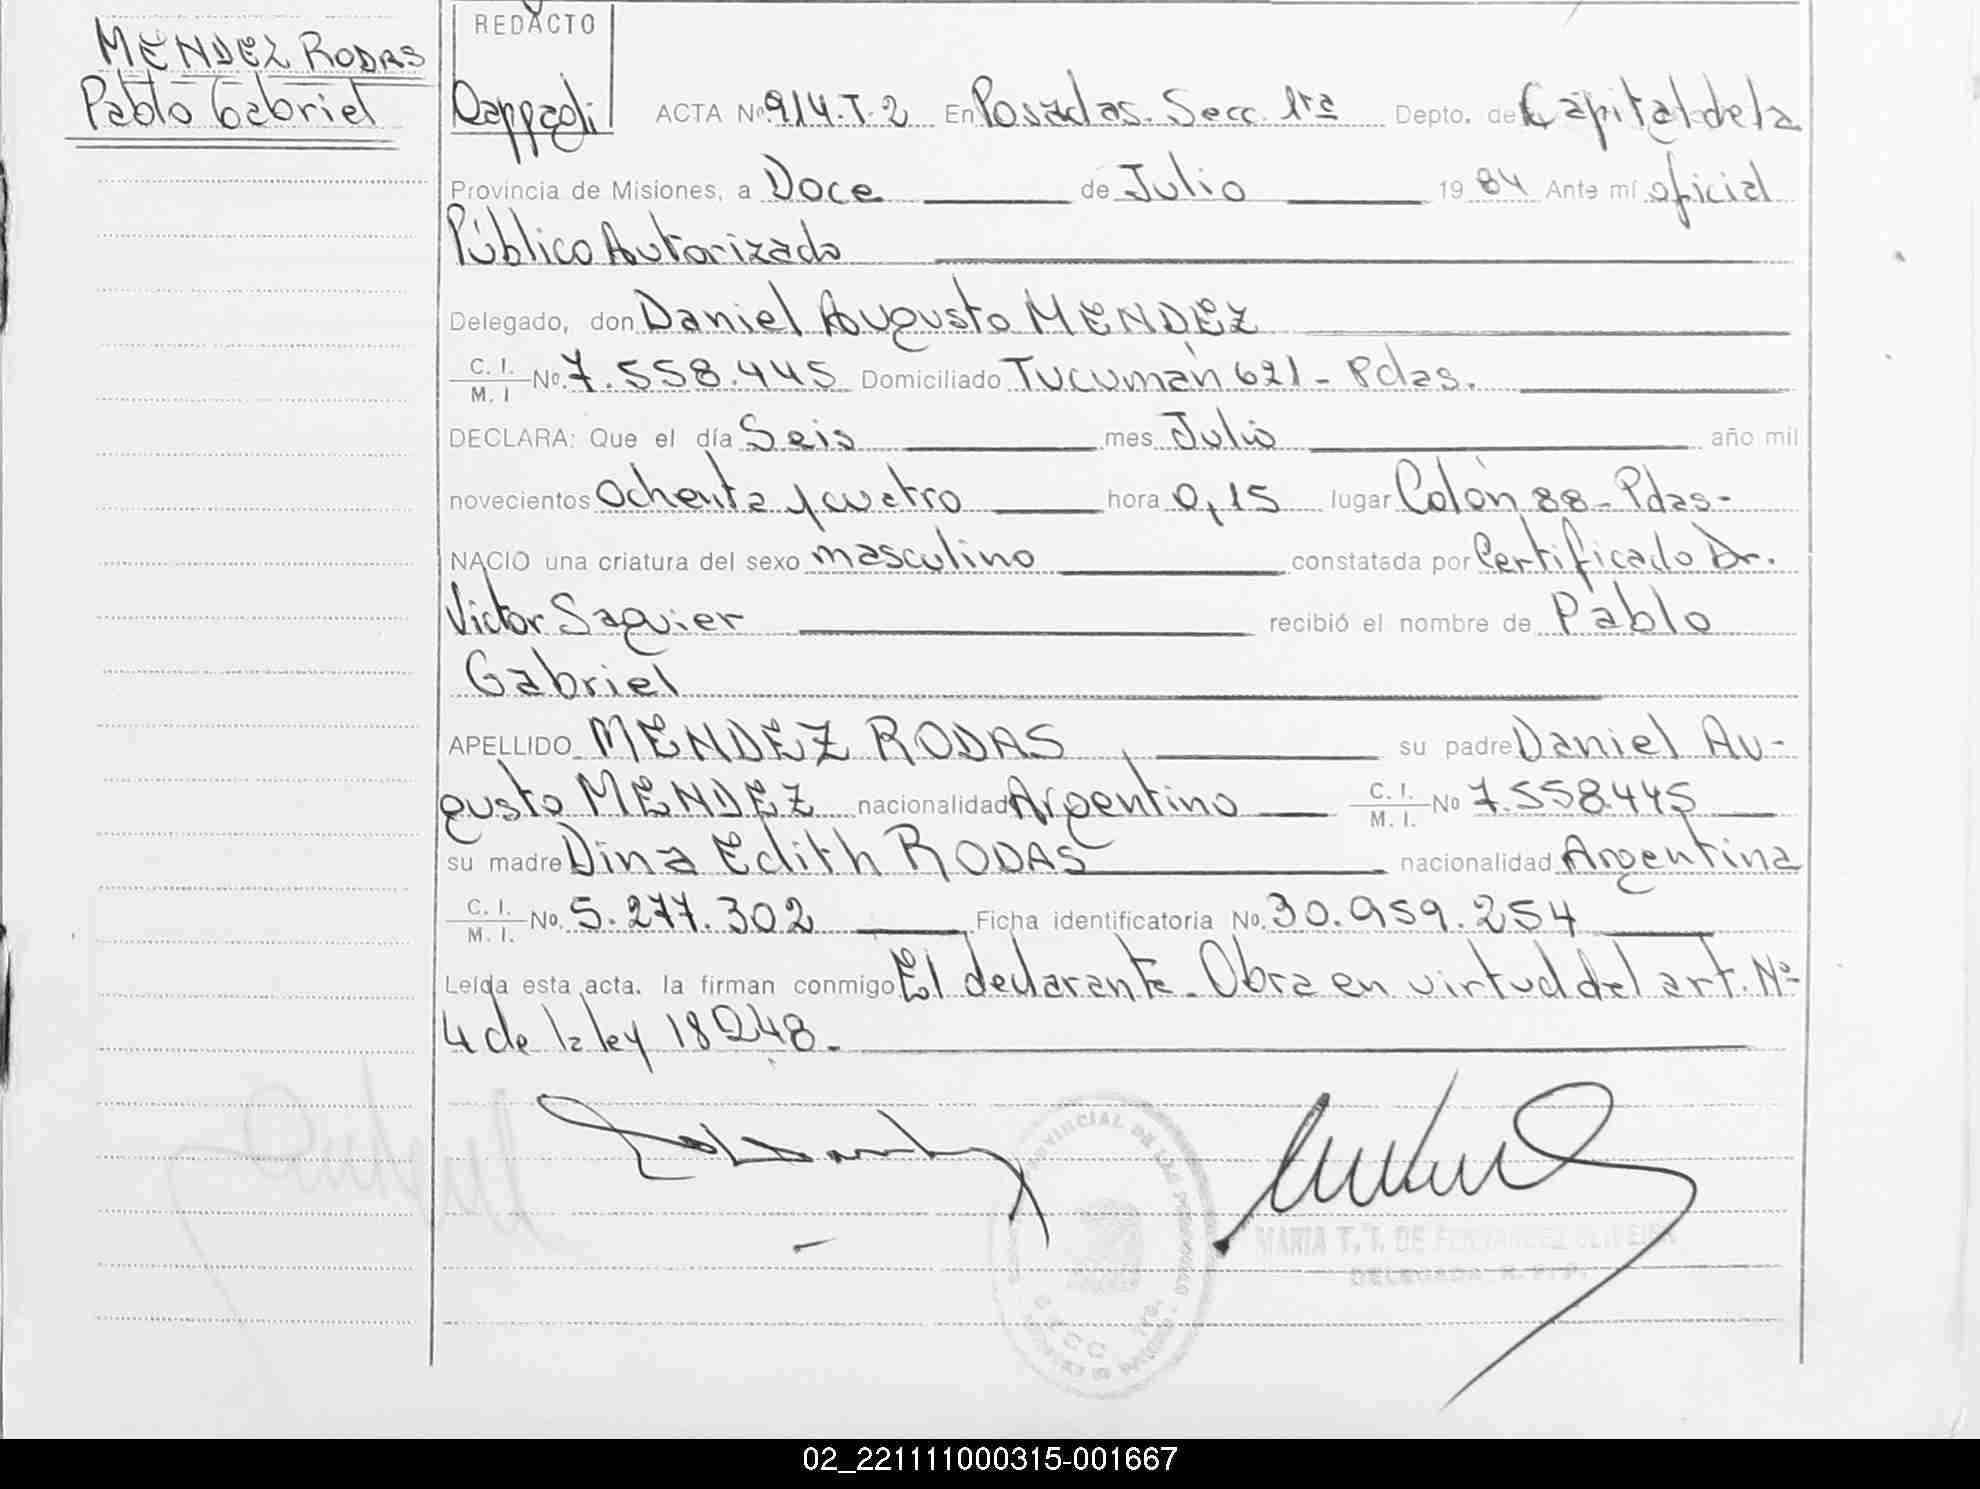 MENDEZ RODAS
Pablo Gabriel
REDACTO
ACTA Nº 914.T.2 En Posadas. Secc. 1ra Depto. de Capital de la
Provincia de Misiones, a Doce de Julio 1984 Ante mí oficial
Público Autorizado
Delegado, don Daniel Augusto MENDEZ
C. I. / M. I Nº. 7.558.445 Domiciliado Tucumán 621 - Pdas.
DECLARA: Que el día Seis mes Julio año mil
novecientos Ochenta y cuatro hora 0,15 lugar Colón 88 - Pdas -
NACIO una criatura del sexo masculino constatada por Certificado Dr.
Victor Saguier recibió el nombre de Pablo
Gabriel
APELLIDO MENDEZ RODAS su padre Daniel Au-
gusto MENDEZ nacionalidad Argentino C. I. / M. I. Nº 7.558.445
su madre Dina Edith RODAS nacionalidad Argentina
C. I. / M. I. Nº. 5.277.302 Ficha identificatoria Nº. 30.959.254
Leída esta acta. la firman conmigo El declarante. Obra en virtud del art. Nº
4 de la ley 18248.
MARIA T. T. DE FERNANDEZ OLIVEIRA
DELEGADA R. P. P.
02_221111000315-001667